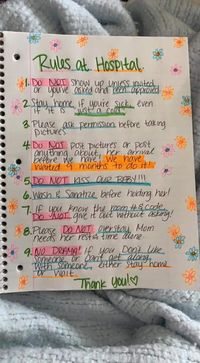 Rules at Hospital
1. DO NOT show up unless invited
or you've asked and been approved
2. Stay home if you're sick, even
if it is just a cold
3. Please ask permission before taking
pictures
4. DO NOT post pictures or post
anything about her arrival
before we have! We have
waited 9 months to do it!
5. DO NOT KISS OUR BABY!!!
6. Wash & Sanatize before holding her!
7. If you know the room # & Code,
DO NOT give it out without asking!
8. Please DO NOT overstay, Mom
needs her rest & time alone
9. NO DRAMA! If you Don't like
someone or can't get along
with someone, either stay home
or wait.
Thank you!♡